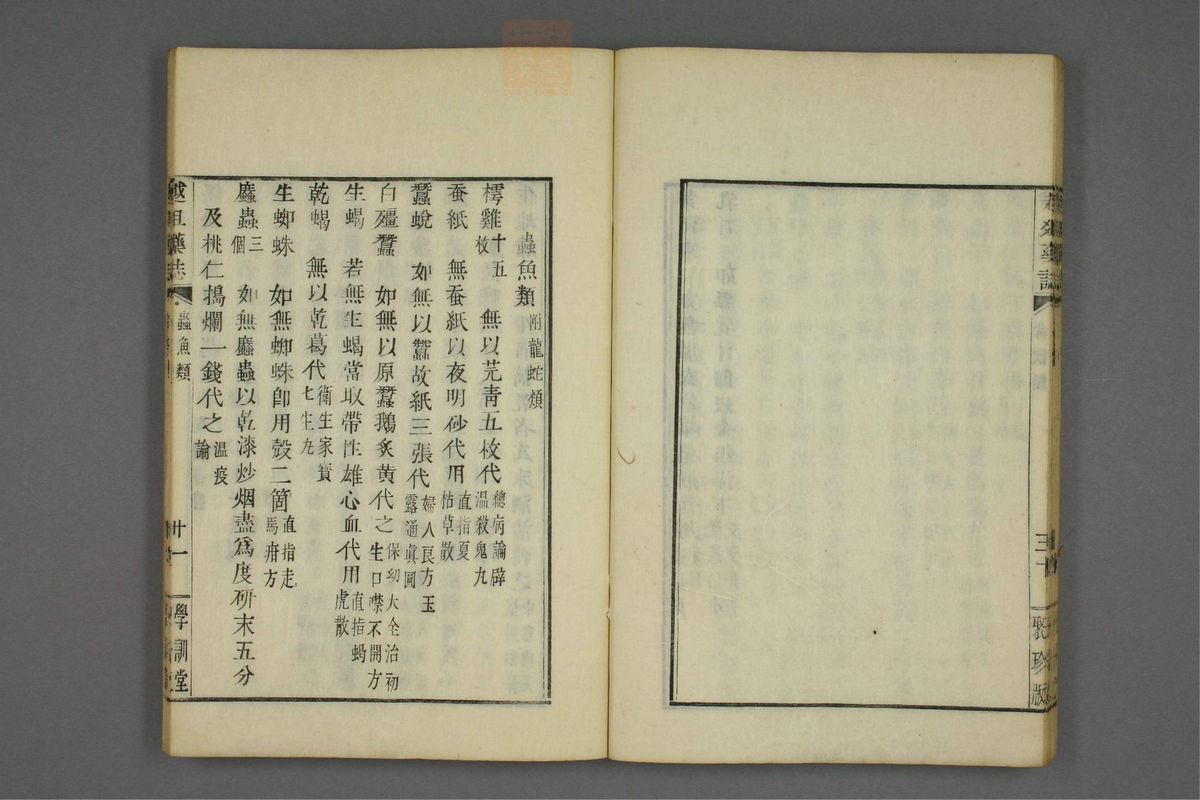 蟲魚類附龍蛇類
樗雞十五枚 無以芫青五枚代總病論辟温殺鬼丸
蚕紙 無蚕紙以夜明砂代用直指夏枯草散
蠶蛻 如無以蠶故紙三張代婦人良方玉露通眞圓
白殭蠶 如無以原蠶鵝炙黄代之保幼大全治初生口噤不開方
生蝎 若無生蝎當取帶性雄心血代用直指蝎虎散
乾蝎 無以乾葛代衛生家寶七生丸
生蜘蛛 如無蜘蛛卽用殼二箇直指走馬疳方
䗪蟲三個 如無䗪蟲以乾漆炒烟盡爲度硏末五分
及桃仁搗爛一錢代之温疫論
蟲魚類
廿一
學訓堂
三十
聚珍版